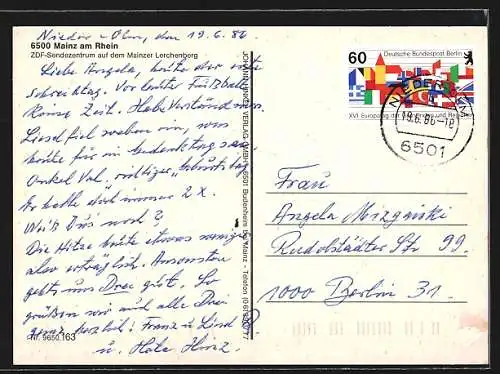 Nieder-Olm, den 19.6.86
6500 Mainz am Rhein
ZDF-Sendezentrum auf dem Mainzer Lerchenberg
Liebe Angela, heute der
Vor lauter Fußball
Keine Zeit. Habt Verständnis.
Liesel fiel soeben ein, was
heute für ein Gedenktag sei
Onkel Val. richtiger Geburtstag
Er hatte doch immer 2 x.
Weißt Du's noch?
Die Hitze heute etwas weniger
aber erträglich. Ansonsten
geht's uns Drei gut. So
grüßen wir auch alle Drei
ganz herzlich: Franz u. Liesel
u.
Nr. 9650.163
JOHANNUNKE VERLAG GMBH 6501 Budenheim bei Mainz - Telefon
60
Deutsche Bundespost Berlin
XVI. Europatag der Gemeinden und Regionen
NIEDER-OLM
19.6.86-18
6501
Frau
Angela Mirzginski
Rudolstädter Str 99.
1000 Berlin 31.